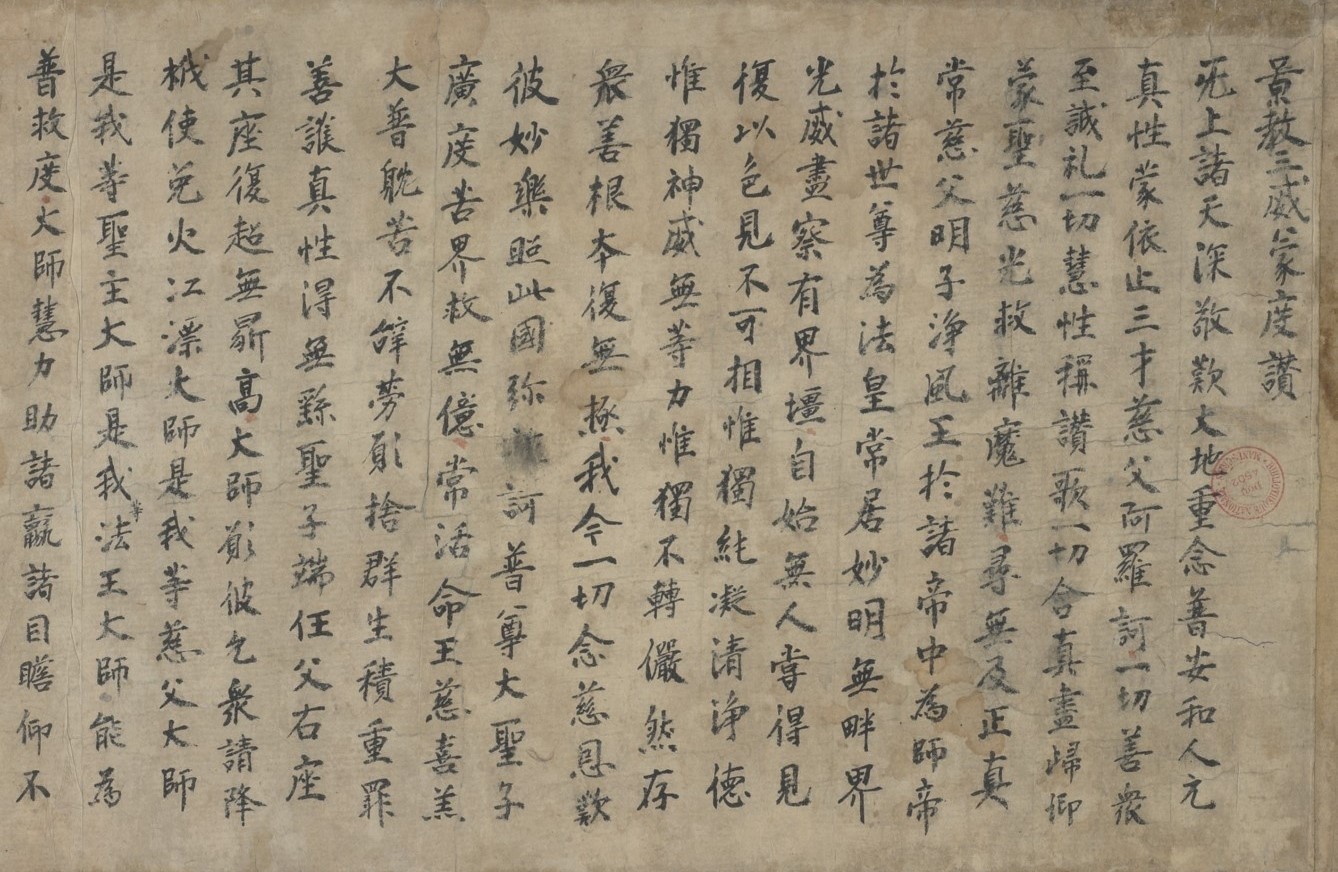 景教三威蒙度讚
无上諸天深敬歎大地重念普安和人元
真性蒙依止三才慈父阿羅訶一切善衆
至誠礼一切慧性稱讚歌一切含真盡歸仰
蒙聖慈光救離魔難尋無及正真
常慈父明子淨風王於諸帝中為師帝
於諸世尊為法皇常居妙明無畔界
光威盡察有界壃自始無人甞得見
復以色見不可相惟獨純凝清淨德
惟獨神威無等力惟獨不轉儼然存
衆善根本復無極我今一切念慈恩歎
彼妙樂照此國弥訶普尊大聖子
廣度苦界救無億常活命王慈喜羔
大普躭苦不辝勞願捨群生積重罪
善護真性得無繇聖子端任父右座
其座復超無㝵高大師願彼乞衆請降
栰使免火江漂大師是我等慈父大師
是我等聖主大師是我等法王大師能為
普救度大師慧力助諸羸諸目瞻仰不